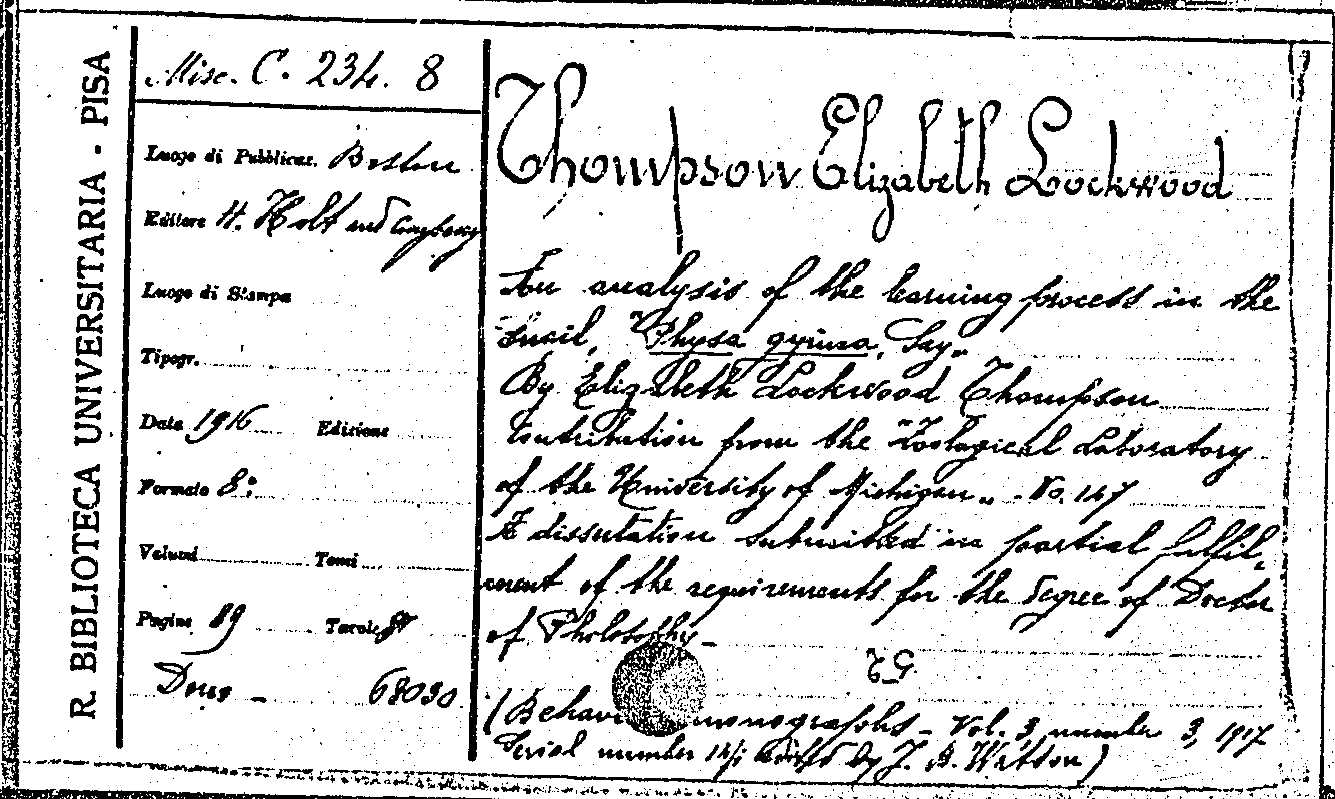 R. BIBLIOTECA UNIVERSITARIA - PISA
Misc. C. 234. 8
Luogo di Pubblicaz. Boston
Editore H. Holt and Company
Luogo di Stampa
Tipogr.
Data 1916 Edizione
Formato 8º
Volumi Tomi
Pagine 89 Tavole
Dono - 68030
Thompson Elizabeth Lockwood
An analysis of the learning process in the
snail, "Physa gyrina, Say„
By Elizabeth Lockwood Thompson
Contribution from the "Zoological Laboratory
of the University of Michigan„ - No. 147
A dissertation submitted in partial fulfil-
ment of the requirements for the degree of Doctor
of Pholosophy -
(Behav monographs - Vol. 3, number 3, 1917
Serial number 14; edited by J. B. Watson)